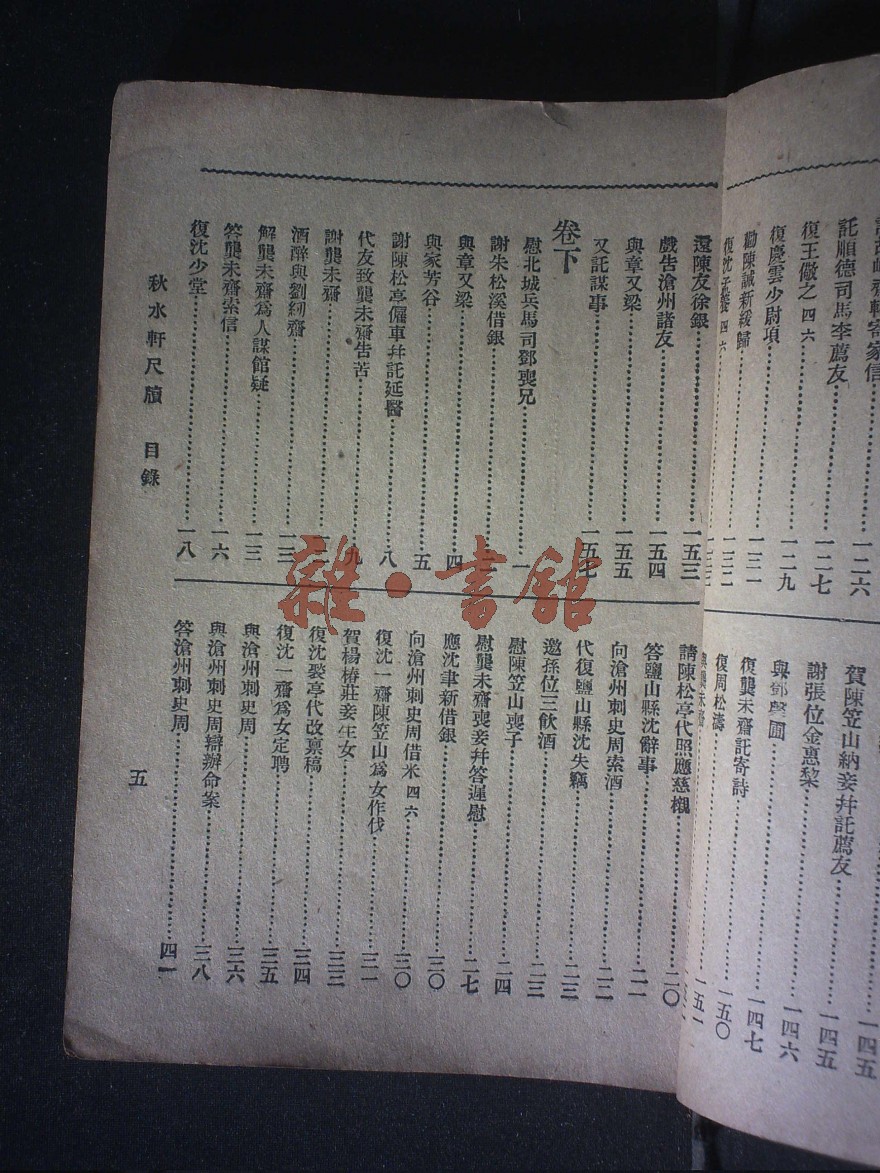 託順德司馬李薦友 一二七
復王儆之四六 一二九
復慶雲少尉項 一三一
勸陳誠新緩歸 一三二
賀陳笠山納妾幷託薦友 一四五
謝張位金惠棃 一四五
與鄧 圃 一四六
復龔未齋託寄詩 一四七
復周松濤 一五〇
與龔未齋 一五一
還陳友徐銀 一五三
戲告滄州諸友 一五四
與章又梁 一五五
又託謀事 一五七
卷下
慰北城兵馬司鄧喪兄 一
謝朱松溪借銀
與章又梁 四
與家芳谷 五
謝陳松亭僱車幷託延醫 八
代友致龔未齋告苦 九
謝龔未齋
酒醉與劉紉齋 一三
解龔未齋爲人謀館疑 一三
答龔未齋索信 一六
復沈少堂 一八
請陳松亭代照應慈櫬 二〇
答鹽山縣沈辭事 二一
向滄州刺史周索酒 二二
代復鹽山縣沈失竊 二三
邀孫位三飲酒 二三
慰陳笠山喪子 二四
慰龔未齋喪妾幷答遲慰 二七
應沈聿新借銀 三〇
向滄州刺史周借米四六 三〇
復沈一齋陳笠山爲女作伐 三一
賀楊椿莊妾生女 三三
復沈裴亭代改稟稿 三四
復沈一齋爲女定聘 三五
與滄州刺史周 三六
與滄州刺史周辯辦命案 三八
答滄州刺史周 四一
秋水軒尺牘 目錄
五
雜·書館